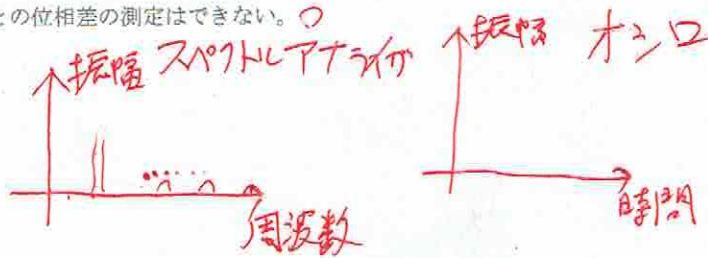 との位相差の測定はできない。○
振幅 スペクトルアナライザ
周波数
振幅 オシロ
時間